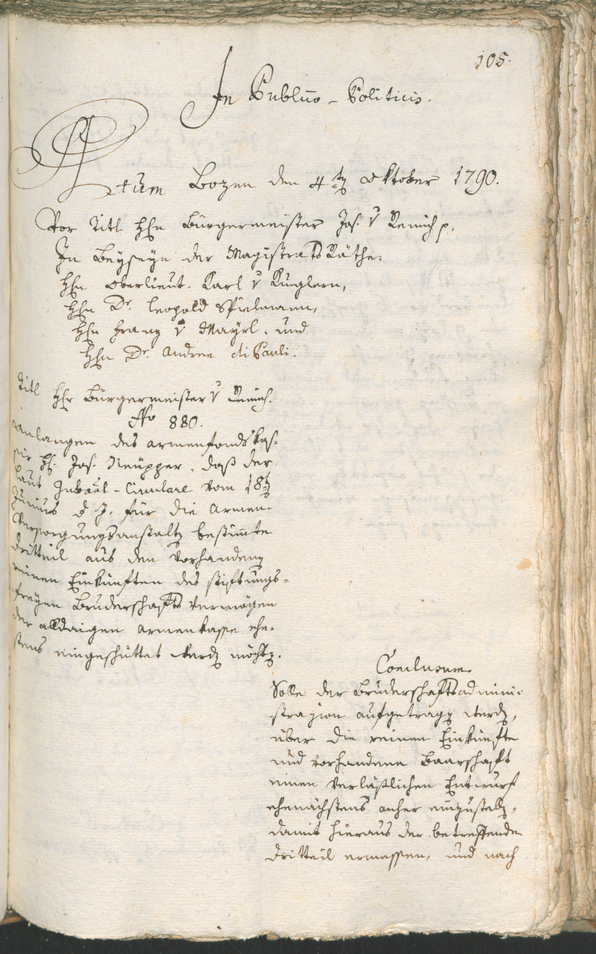 105.
In Publico-Politicis.
Actum Bozen den 4ten Oktober 1790.
Vor Titl Hhn Bürgermeister Jos. v Remich p.
In Beyseyn der Magistrats Räthe:
Hhn Oberlieut. Karl v Kuglern,
Hhn Dr. Leopold Spielmann,
Hhn Franz v Mayrl, und
Hhn Dr. Andree di Pauli.
Titl Hhr Bürgermeister v Remich.
No 880.
Anlangen des Armenfondskas-
sir H: Jos. Neupper, daß der
laut Gubĕal-Circulare vom 18t
Junius d. J. für die Armen-
Versorgungsanstalt bestimmte
Dritteil aus den vorhandenen
reinen Einkünften des stiftungs-
freyen Bruderschafts Vermögen
der alldaigen Armenkasse ehe-
stens eingeschüttet werden möchte.
Conclusum.
Solle der Bruderschaftsadmini-
strazion aufgetragen werden,
über die reinen Einkünfte
und vorhandene Baarschaft
einen verläßlichen Entwurf
ehenächstens anher einzustellen,
damit hieraus der betreffende
Dritteil ermessen, und nach